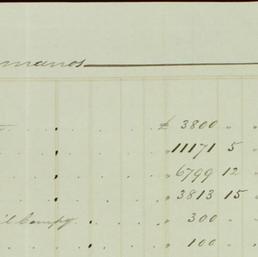 manos
£ 3800 " "
" 11171 5 "
" 6799 12 "
" 3813 15 "
" 300 " "
" 100 " "